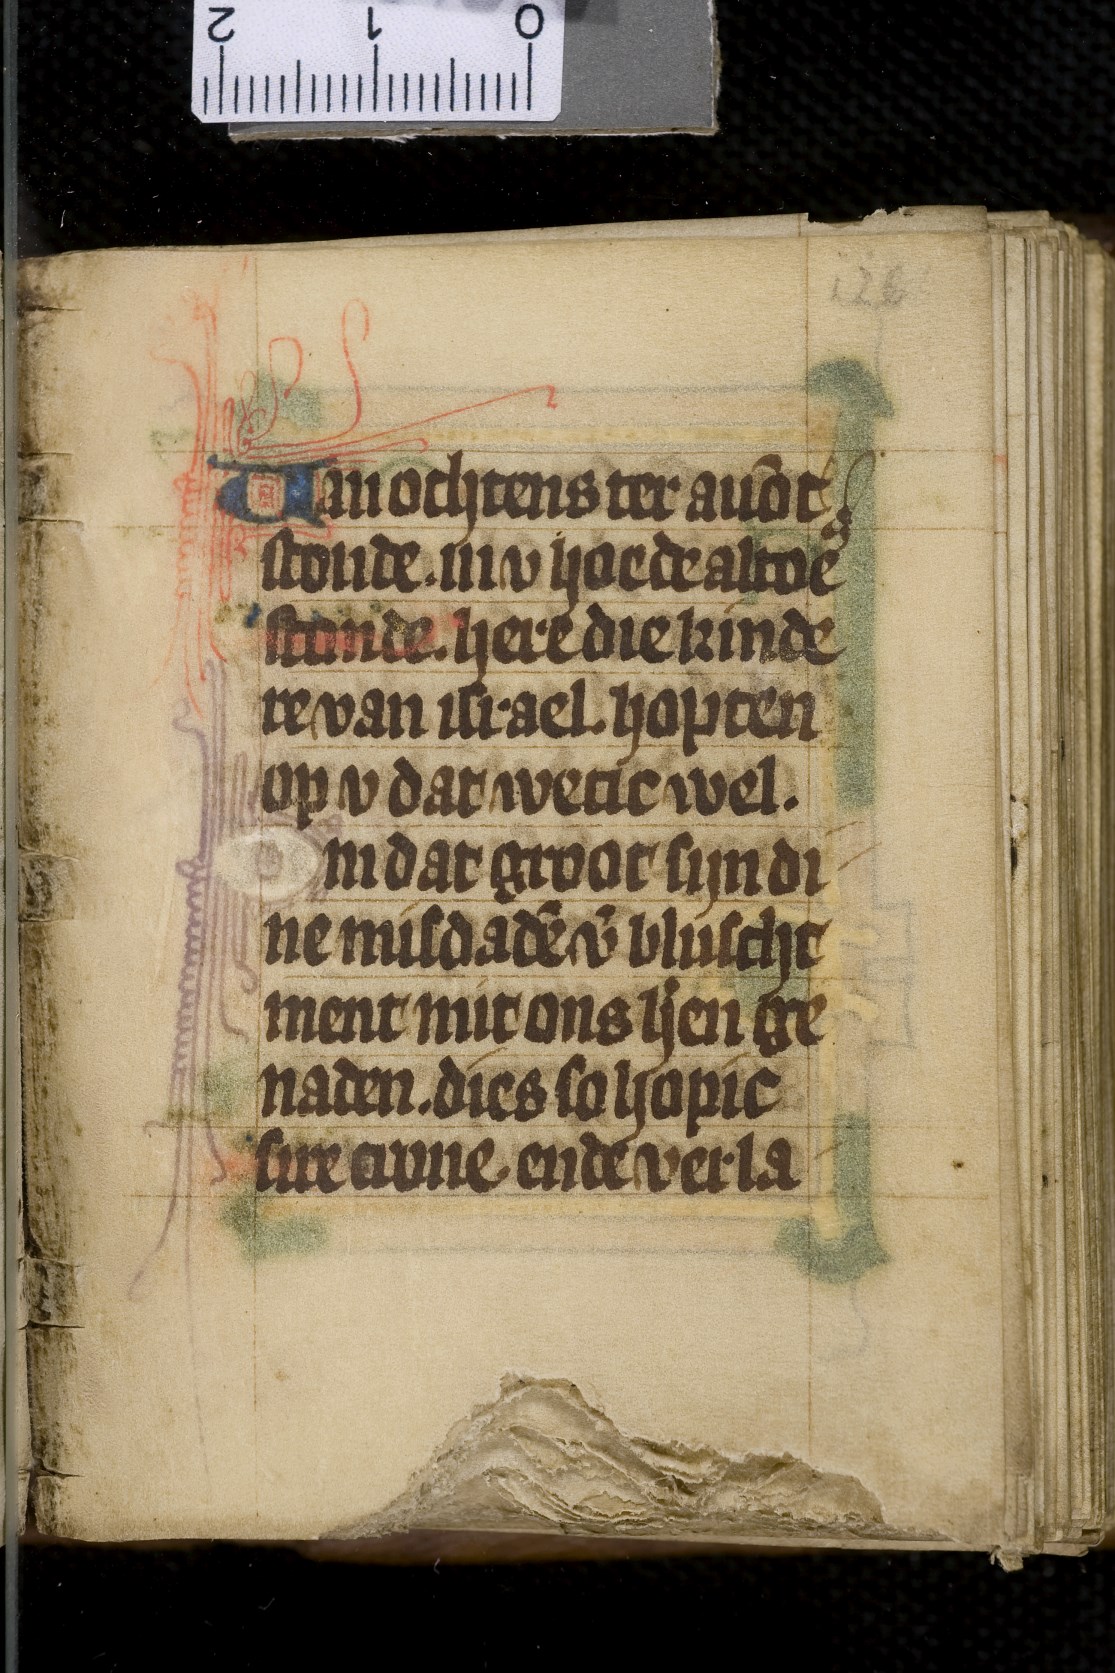 2 1 0
126
Van ochtens ter auōt
stonde. in v hoede altoe
stande. here die kinde
re van israel. hopten
op v dat wetic wel.
m dat groot sijn di
ne misdadē v̄ bluscht
ment mit ons hēn ge
naden. dies so hopic
sure ende verla